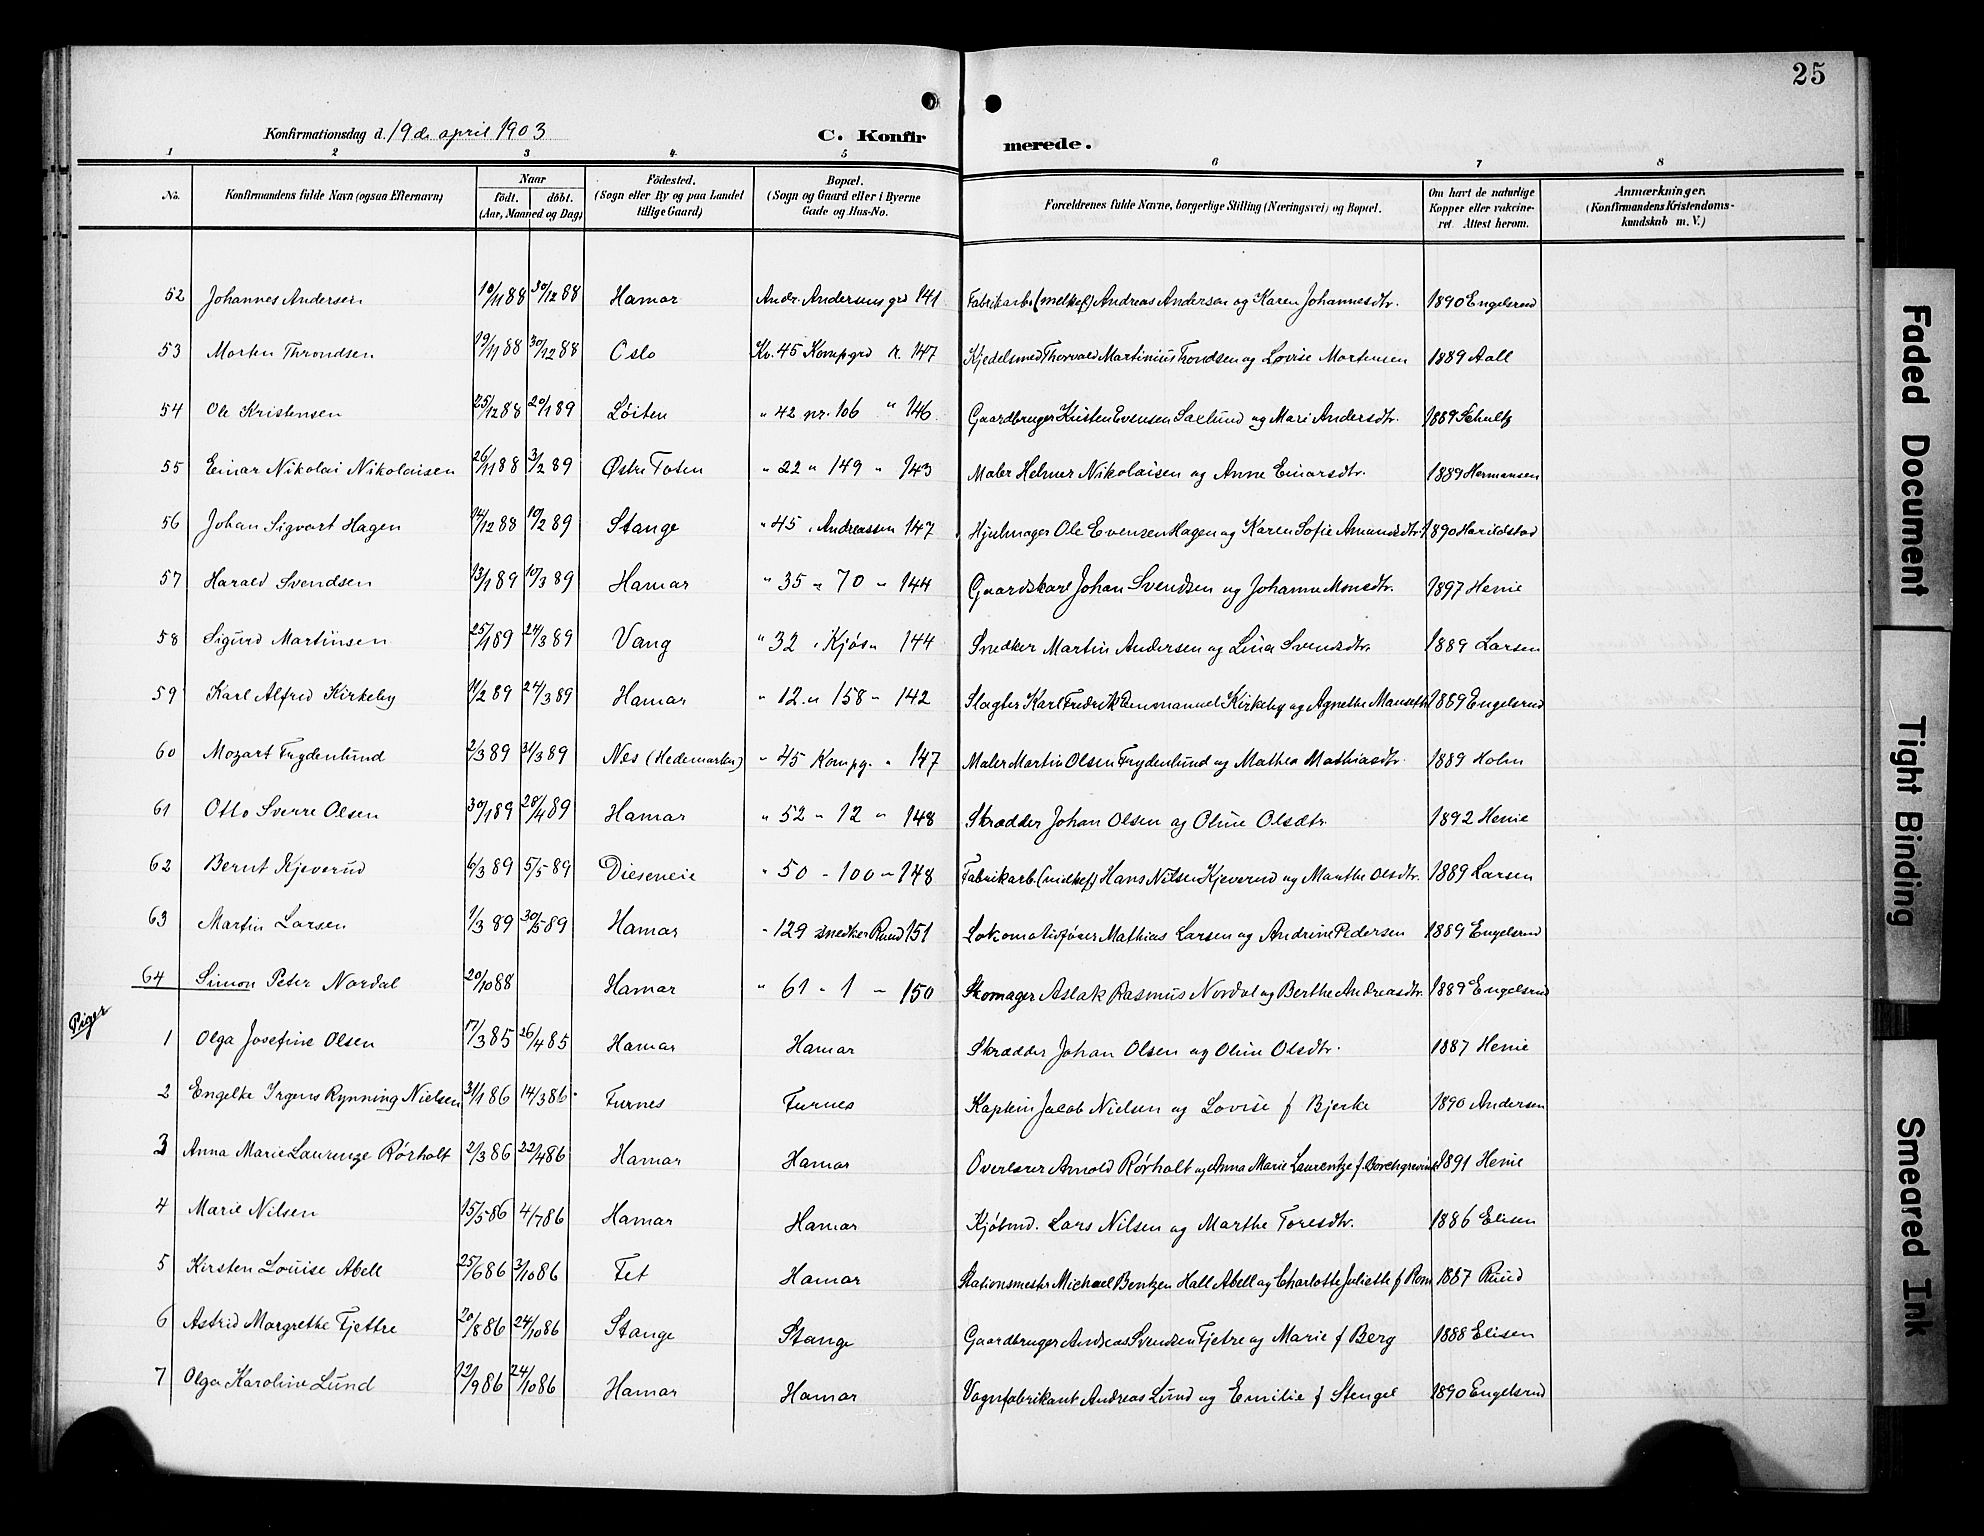 25
Konfirmationsdag d. 19de april 1903 C. Konfirmerede.
1 2 3 4 5 6 7 8
No. Konfirmandens fulde Navn (ogsaa Efternavn) Naar født. døbt. (Aar, Maaned og Dag) Fødested. (Sogn eller By og paa Landet tillige Gaard) Bopæl. (Sogn og Gaard eller i Byerne Gade og Hus-No. Forældrenes fulde Navne, borgerlige Stilling (Næringsvei) og Bopæl. Om havt de naturlige Kopper eller vaccineret. Attest herom. Anmærkninger. (Konfirmandens Kristendomskundskab m. V.)
52 Johannes Andersen 10/11 88 30/12 88 Hamar Andr. Andersens grd 141 Fabrikarb. (melkef) Andreas Andersen og Karen Johannesdtr. 1890 Engelsrud
53 Morten Throndsen 19/11 88 30/12 88 Oslo Kv. 45 Kompgrd r. 147 Kjedelsmed Thorvald Martinius Trondsen og Lovise Mortensen 1889 Aall
54 Ole Kristensen 25/12 88 20/1 89 Løiten " 42 nr. 106 " 146 Gaardbruger Kristen Evensen Saxlund og Mari Andersdtr. 1889 Schultz
55 Einar Nikolai Nikolaisen 26/11 88 3/2 89 Østre Toten " 22 " 149 " 143 Maler Helmer Nikolaisen og Anne Einarsdtr. 1889 Hermansen
56 Johan Sigvart Hagen 14/12 88 10/2 89 Stange " 45 " Andreassen 147 Hjulmager Ole Evensen Hagen og Karen Sofie Amundsdtr. 1890 Harildstad
57 Harald Svendsen 13/1 89 10/3 89 Hamar " 35 " 70 " 144 Gaardskarl Johan Svendsen og Johanne Monsdtr. 1897 Henie
58 Sigurd Martinsen 25/1 89 24/3 89 Vang " 32 " Kjøs " 144 Snedker Martin Andersen og Lina Svendsdtr. 1889 Larsen
59 Karl Alfred Kirkeby 11/2 89 24/3 89 Hamar " 12 " 158 " 142 Slagter Karl Fredrik Emmanuel Kirkeby og Agnethe 1889 Engelsrud
60 Mozart Frydenlund 2/3 89 31/3 89 Nes (Hedemarken) " 45 Kompg. " 147 Maler Martin Olsen Frydenlund og Mathea Mathiasdtr. 1889 Holm
61 Otto Sverre Olsen 30/1 89 28/4 89 Hamar " 52 " 12 " 148 Skrædder Johan Olsen og Oline Olsdtr. 1892 Henie
62 Bernt Kjeverud 6/3 89 5/5 89 Dieseneie " 50 " 100 " 148 Fabrikarb. (melkef) Hans Nilsen Kjeverud og Marthe Olsdtr. 1889 Larsen
63 Martin Larsen 1/3 89 30/5 89 Hamar " 129 snedker Ruud 151 Lokomotivfører Mathias Larsen og Andrine Pedersen 1889 Engelsrud
64 Simon Peter Nordal 20/10 88 Hamar " 61 " 1 " 150 Skomager Aslak Rasmus Nordal og Berthe Andreasdtr. 1889 Engelsrud
Piger
1 Olga Josefine Olsen 17/3 85 26/4 85 Hamar Hamar Skrædder Johan Olsen og Oline Olsdtr. 1887 Henie
2 Engelke Irgens Rynning Nielsen 31/1 86 14/3 86 Furnes Furnes Kaptein Jacob Nielsen og Lovise f Bjerke 1890 Andersen
3 Anna Marie Laurenze Rørholt 2/3 86 22/4 86 Hamar Hamar Overlærer Arnold Rørholt og Anna Marie Laurentze f. Borchgrevink 1891 Henie
4 Marie Nilsen 15/5 86 4/7 86 Hamar Hamar Kjøbmd. Lars Nilsen og Marthe Toresdtr. 1886 Elisen
5 Kirsten Louise Abell 25/6 86 3/10 86 Fet Hamar Stationsmestr Michael Bentzen Hall Abell og Charlotte Juliette f Rom 1887 Ruud
6 Astrid Margrethe Fjetre 20/8 86 24/10 86 Stange Stange Gaardbruger Andreas Svendsen Fjetre og Marie f Berg 1888 Elisen
7 Olga Karoline Lund 12/9 86 24/10 86 Hamar Hamar Vognfabrikant Andreas Lund og Emilie f Stengel 1890 Engelsrud
Faded Document
Tight Binding
Smeared Ink